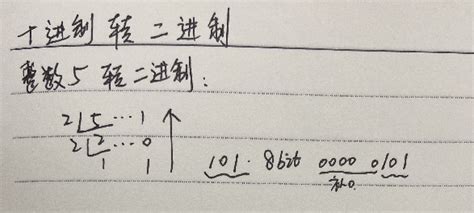 十进制 转 二进制
整数5 转二进制:
2 5 … 1
2 2 … 0
1 1
101. 8bit 0000 0101
补0